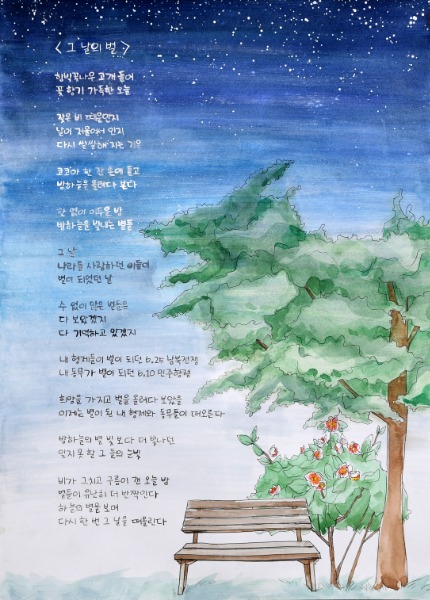 < 그 날의 별 >
함박꽃나무 고개 들어
꽃 향기 가득한 오늘
궂은 비 때문인지
날이 저물어서 인지
다시 쌀쌀해 지는 기운
코코아 한 잔 손에 들고
밤하늘을 올려다 본다
한 없이 어두운 밤
밤하늘을 빛내는 별들
그 날
나라를 사랑하던 이들이
별이 되었던 날
수 없이 많은 별들은
다 보았겠지
다 기억하고 있겠지
내 형제들이 별이 되던 6.25 남북전쟁
내 동무가 별이 되던 6.10 민주항쟁
희망을 가지고 별을 올려다 보았을
이제는 별이 된 내 형제와 동무들이 떠오른다
밤하늘의 별 빛 보다 더 빛나던
잊지 못 할 그 들의 눈빛
비가 그치고 구름이 갠 오늘 밤
별들이 유난히 더 반짝인다
하늘의 별을 보며
다시 한 번 그 날을 떠올린다